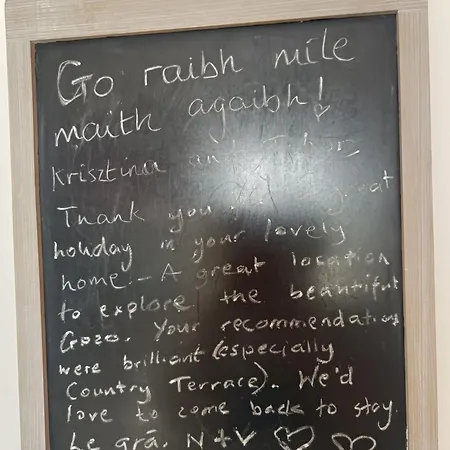 Go raibh míle
maith agaibh!
Krisztina and Tibor,
Thank you great
holiday in your lovely
home. - A great location
to explore the beautiful
Gozo. Your recommendations
were brilliant (especially
Country Terrace). We'd
love to come back to stay.
Le grá, N + V